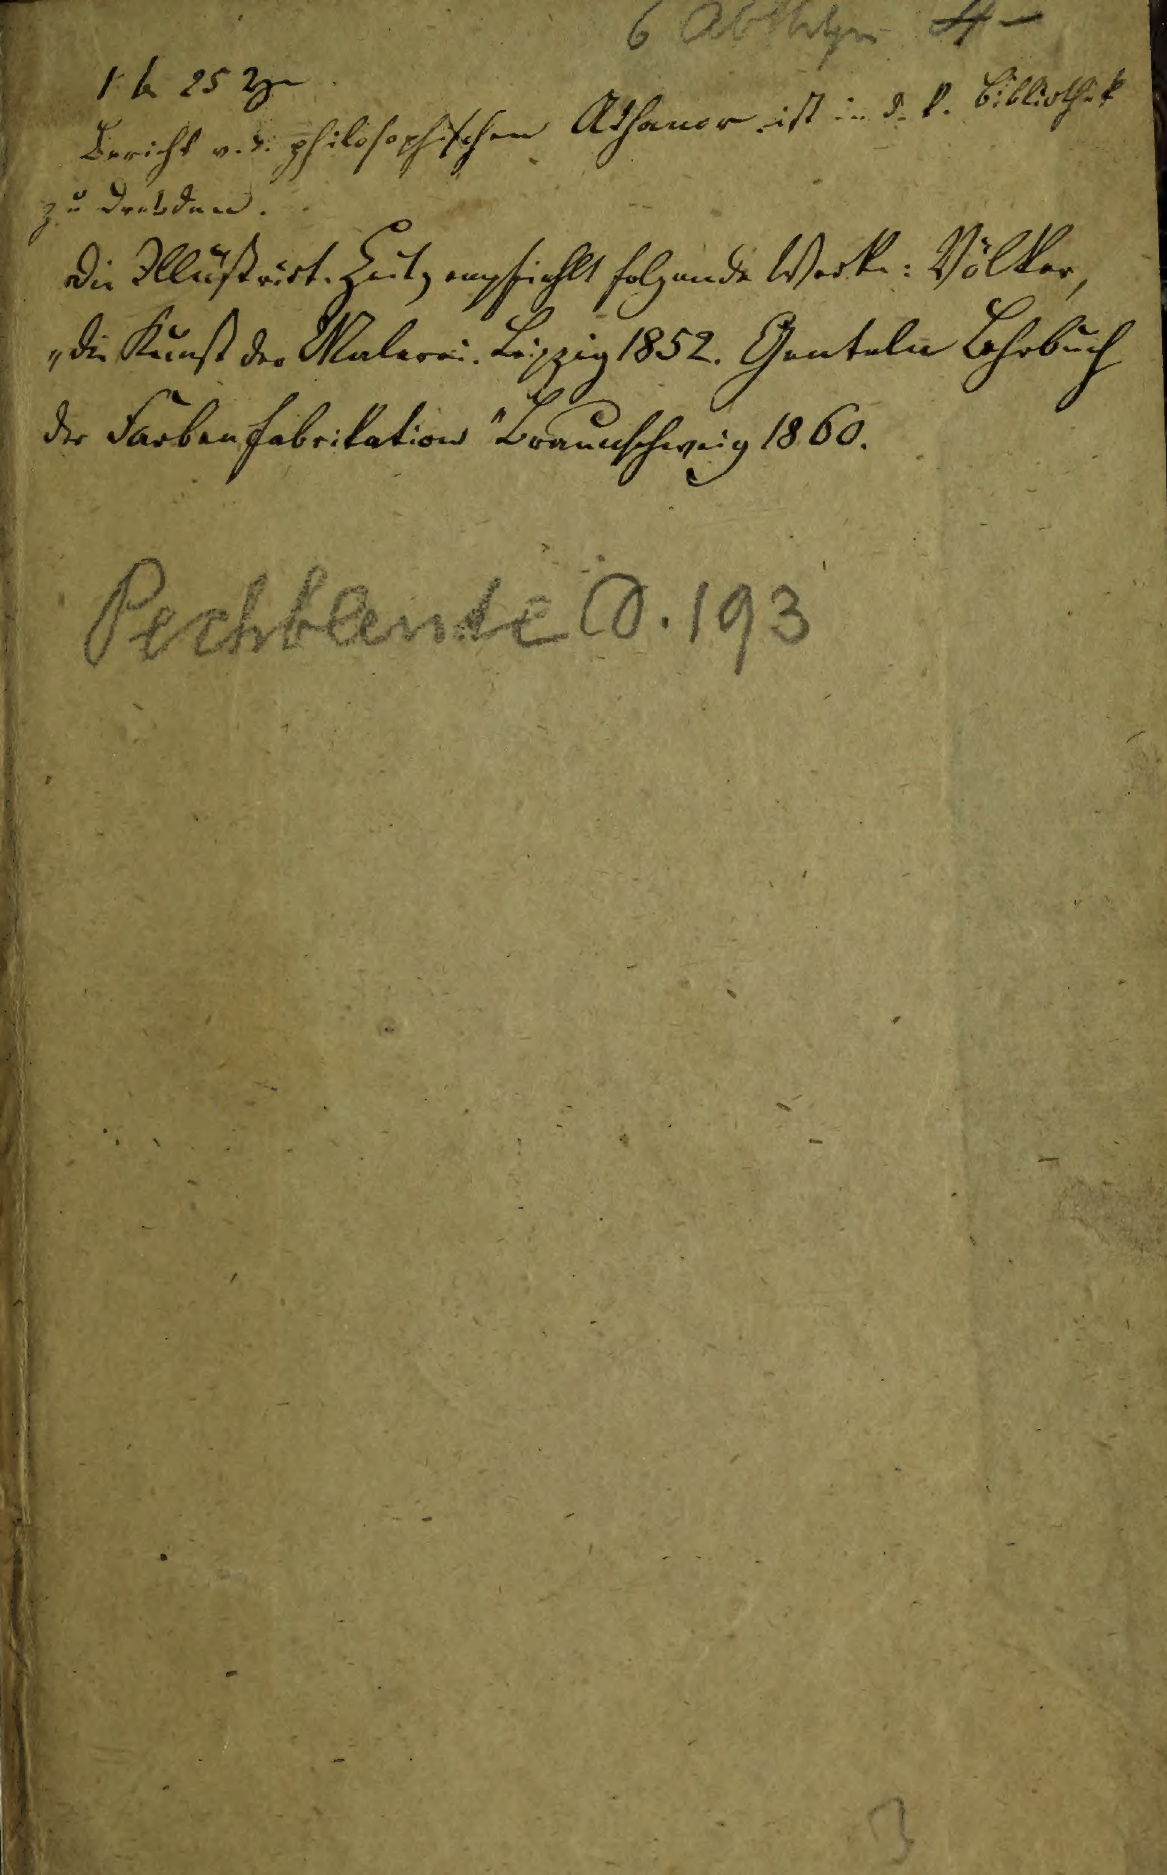 6 Abthlgn 4 –
1 25
Bericht v. d. philosophischen Athanor ist in d. k. Bibliothek
zu Dresden.
Die Illustrirt. Zeitg empfiehlt folgende Werke: Völker,
„die Kunst der Malerei. Leipzig 1852. Gentele Lehrbuch
der Farbenfabrikation" Braunschweig 1860.
Pechblende 193
3